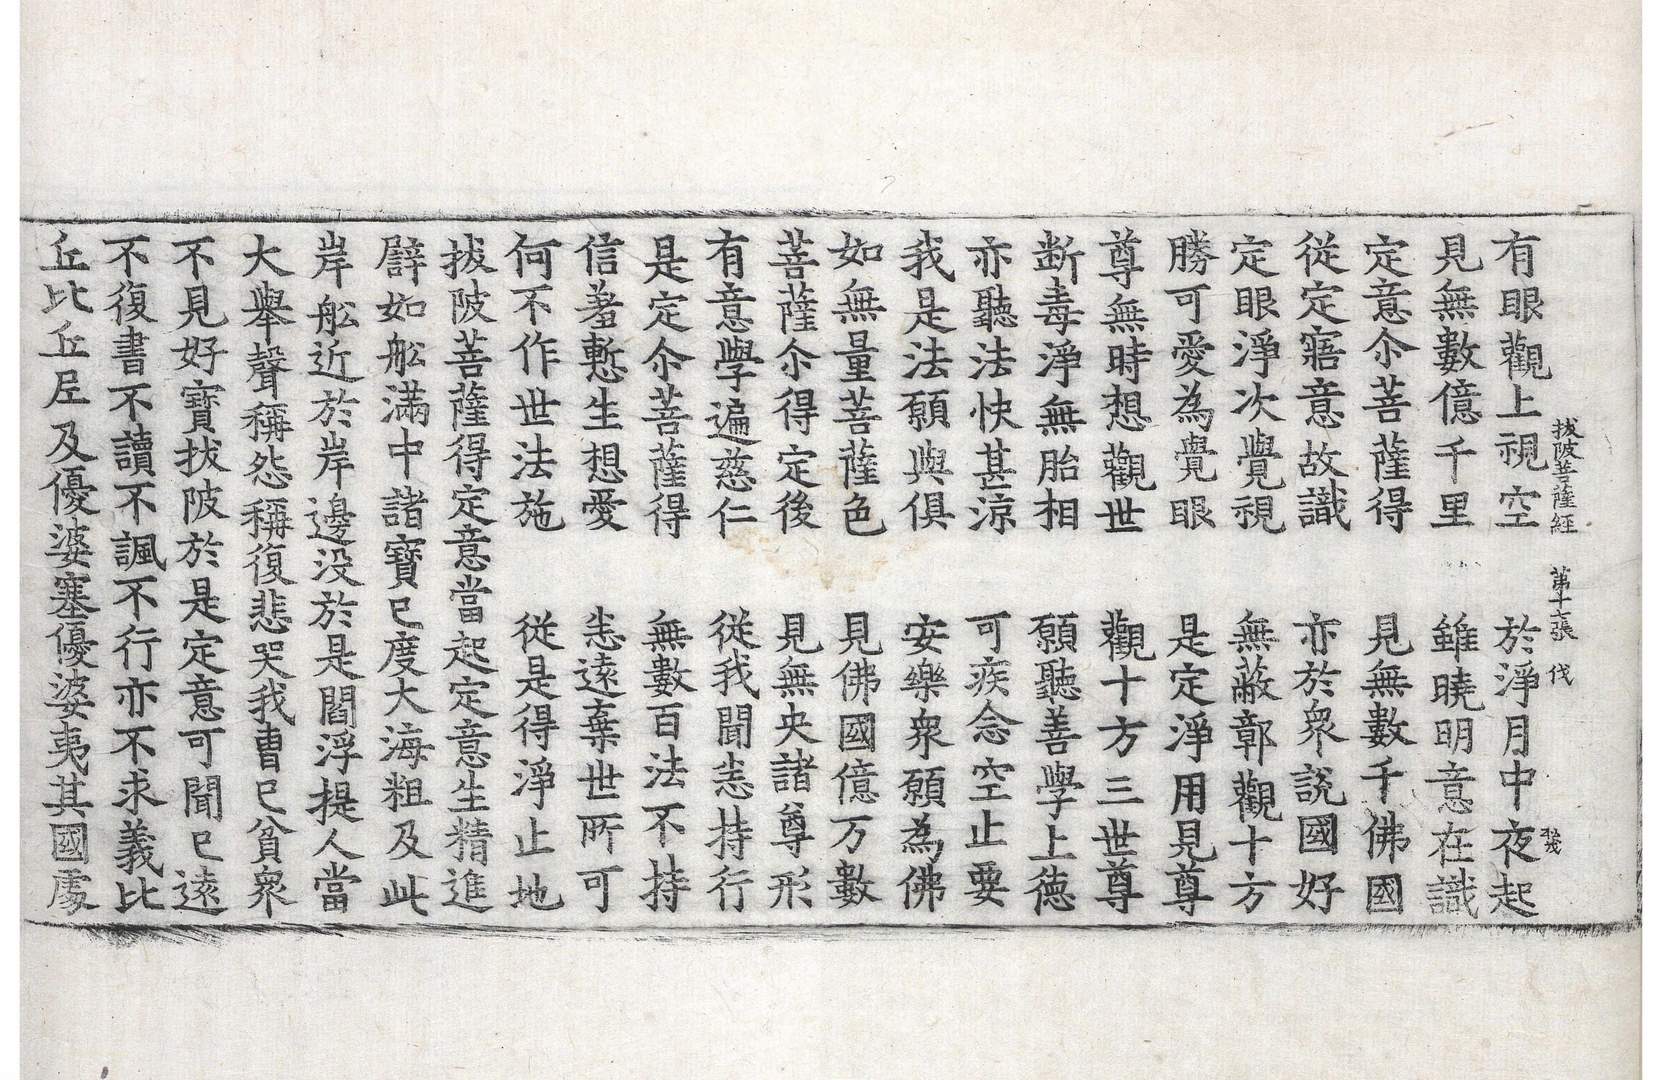 拔陂菩薩經　第十六張　伐
有眼觀上視空　於淨月中夜起
見無數億千里　雖曉明意在識
定意尒菩薩得　見無數千佛國
從定寤意故識　亦於衆說國好
定眼淨次覺視　無蔽鄣觀十方
勝可愛為覺眼　是定淨用見尊
尊無時想觀世　觀十方三世尊
断毒淨無胎相　願聽善學上德
亦聽法快甚涼　可疾念空止要
我是法願與俱　安樂衆願為佛
如無量菩薩色　見佛國億万數
菩薩尒得定後　見無央諸尊形
有意學遍慈仁　從我聞恙持行
是定尒菩薩得　無數百法不持
信羞慙生想愛　恙遠棄世所可
何不作世法施　從是得淨止地
拔陂菩薩得定意當起定意生精進
辟如舩滿中諸寶已度大海粗及此
岸舩近於岸邊没於是閻浮提人當
大舉聲稱怨稱復悲哭我曺已貧衆
不見好寶拔陂於是定意可聞已遠
不復書不讀不諷不行亦不求義比
丘比丘尼及優婆塞優婆夷其國處